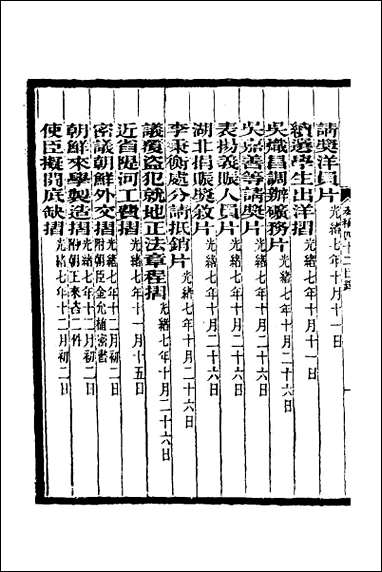 奏稿四十二目錄
請獎洋員片光緒七年十月十一日
續選學生出洋摺光緒七年十月十一日
吳熾昌調辦礦務片光緒七年十月二十六日
吳嘉善等請獎片光緒七年十月二十六日
表揚義賑人員片光緒七年十月二十六日
湖北捐賑獎敘片光緒七年十月二十六日
李秉衡處分請抵銷片光緒七年十月二十六日
議覆盜犯就地正法章程摺光緒七年十月二十六日
近省隄河工費摺光緒七年十一月十五日
密議朝鮮外交摺附朝臣金允植密書光緒七年十二月初二日
朝鮮來學製造摺附朝王來咨二件光緒七年十二月初二日
使臣擬開底缺摺光緒七年十二月初二日